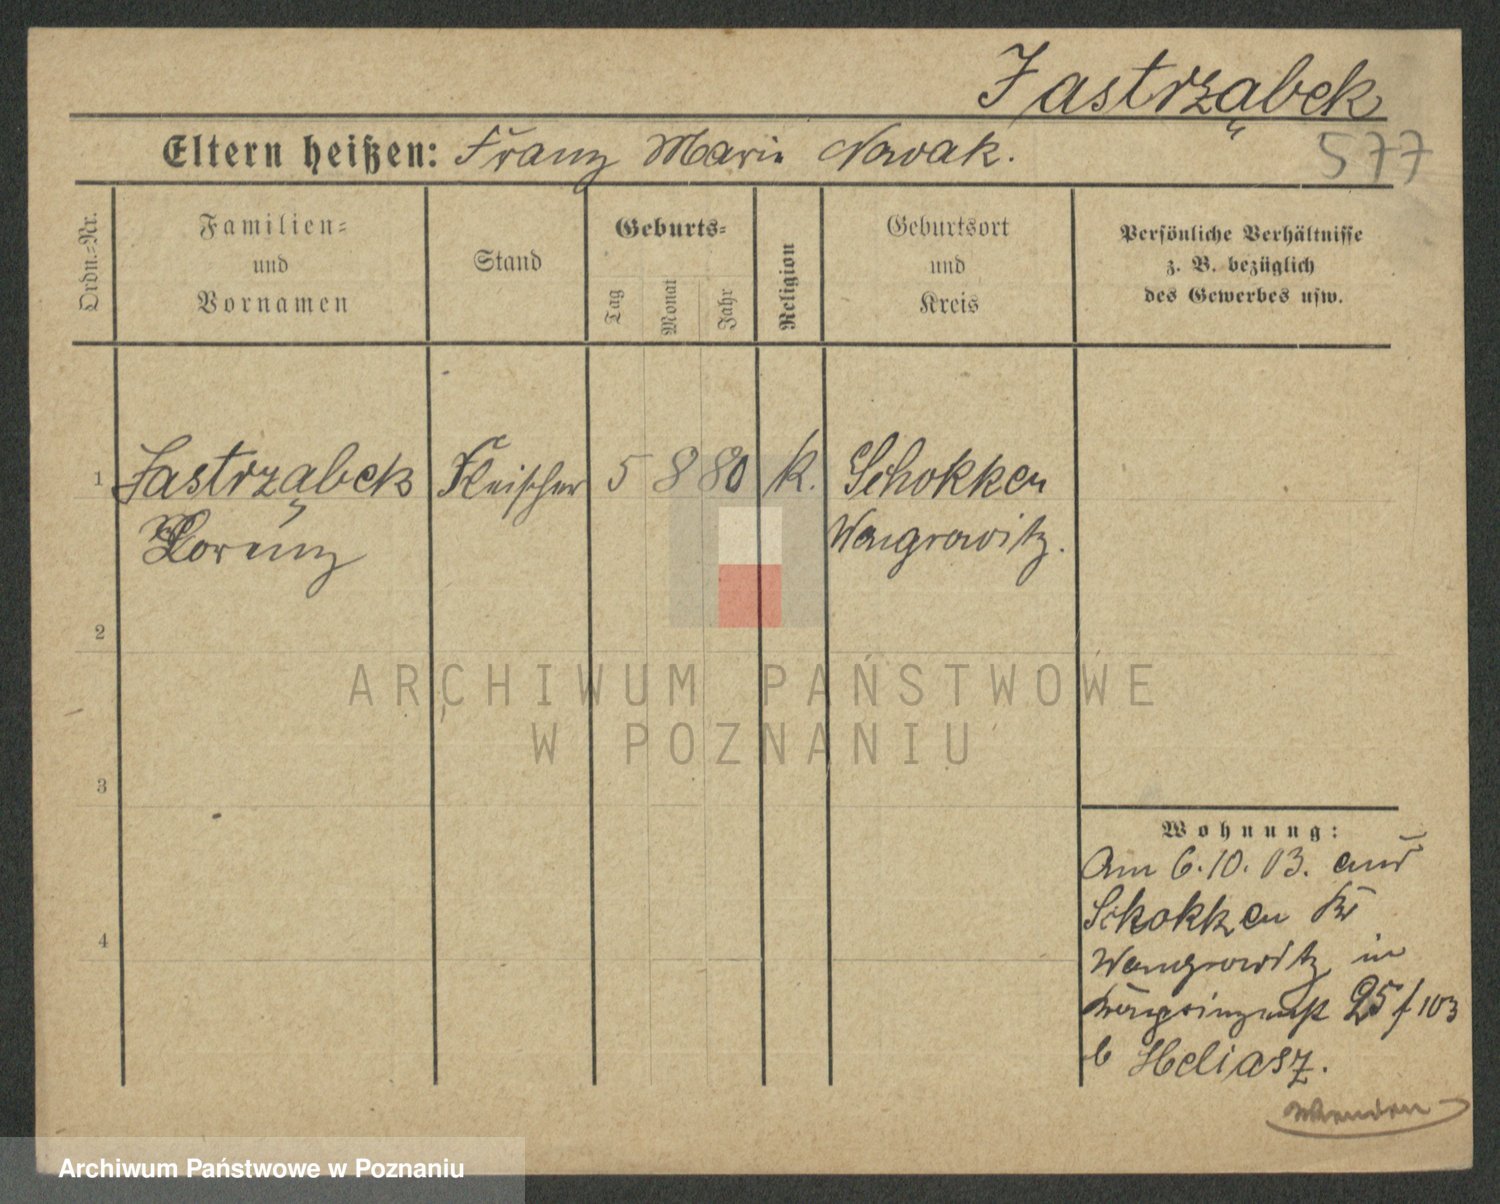 Jastrząbek
577
Eltern heißen: Franz Marie Nowak.
Ordn.-Nr.
Familien-
und
Vornamen
Stand
Geburts-
Tag
Monat
Jahr
Religion
Geburtsort
und
Kreis
Persönliche Verhältnisse
z. B. bezüglich
des Gewerbes usw.
1 Jastrząbek Fleischer 5 8 80 k. Schokken
Lorenz Wongrowitz.
2
3
4
Wohnung:
Am 6.10.03. aus
Schokken Kr
Wongrowitz in
25/103
b Heliasz.
Wenden
ARCHIWUM PAŃSTWOWE
W POZNANIU
Archiwum Państwowe w Poznaniu